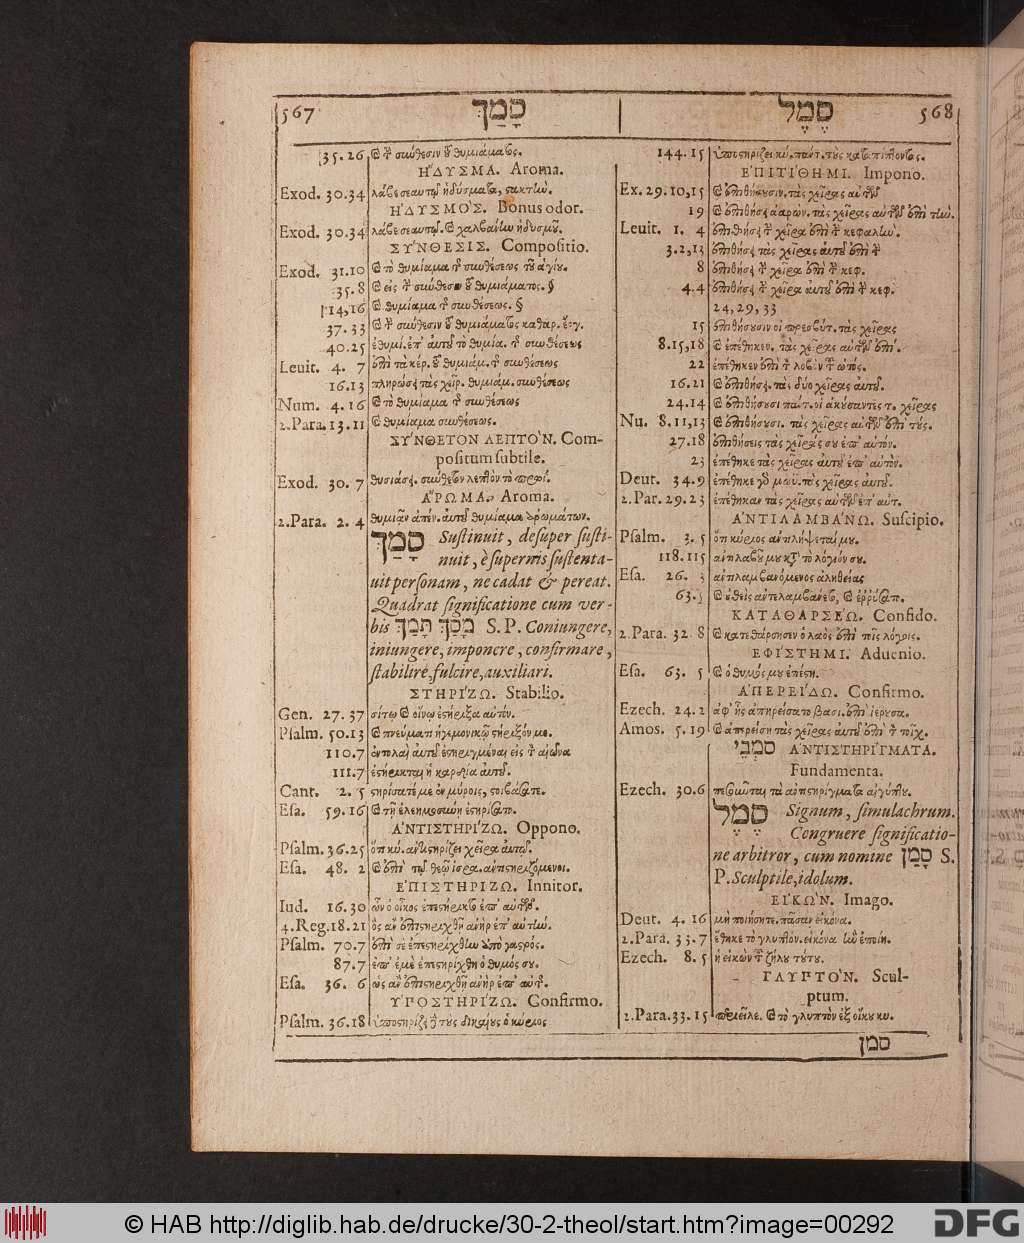 567 סָמַךְ
סֶמֶל 568
35.26 θυμιάματος.
ἭΔΥΣΜΑ. Aroma.
Exod. 30.34 ἡδύσματα, στακτὴν.
ἩΔΥΣΜΟΣ. Bonus odor.
Exod. 30.34 ἡδυσμοῦ.
ΣΥΝΘΕΣΙΣ. Compositio.
Exod. 31.10 τὸ θυμίαμα τῆς συνθέσεως τοῦ ἁγίου.
35.8 εἰς τὴν σύνθεσιν τοῦ θυμιάματος. §
14,16 θυμίαμα τῆς συνθέσεως. §
37.33 τὴν σύνθεσιν τοῦ θυμιάματος καθαρ.
40.25 τὸ θυμία. τῆς συνθέσεως
Leuit. 4. 7 θυμιάμ. τῆς συνθέσεως
16.13 πλήρωσει τὰς χεῖρ. θυμιάμ. συνθέσεως
Num. 4.16 τὸ θυμίαμα τῆς συνθέσεως
2.Para.13.11 θυμίαμα συνθέσεως.
ΣΥΝΘΕΤΟΝ ΛΕΠΤΟΝ. Com-
positum subtile.
Exod. 30. 7 σύνθετον λεπτὸν τὸ πρωῒ.
ἌΡΩΜΑ. Aroma.
2.Para. 2. 4 θυμιᾶν ἀπέν. αὐτοῦ θυμίαμα ἀρωμάτων.
סָמַךְ Sustinuit, desuper susti-
nuit, è supernis sustenta-
uit personam, ne cadat & pereat.
Quadrat significatione cum ver-
bis מָכַךְ תָּמַךְ S.P. Coniungere,
iniungere, imponere, confirmare,
stabilire, fulcire, auxiliari.
ΣΤΗΡΙΖΩ. Stabilio.
Gen. 27.37 σίτῳ οἴνῳ ἐστήριξα αὐτόν.
Psalm. 50.13 πνεύματι ἡγεμονικῷ στήριξόν με.
110.7 ἐντολαὶ αὐτοῦ ἐστηριγμέναι εἰς τὸν αἰῶνα
111.7 ἐστήρικται ἡ καρδία αὐτοῦ.
Cant. 2. 5 στηρίσατέ με ἐν μύροις, στοιβάσατε.
Esa. 59.16 τῇ ἐλεημοσύνῃ ἐστηρίσατο.
ἈΝΤΙΣΤΗΡΙΖΩ. Oppono.
Psalm. 36.25 ὅτι κύ. ἀντιστηρίζει χεῖρα αὐτοῦ.
Esa. 48. 2 τῷ θεῷ ἰσρα. ἀντιστηριζόμενοι.
ἘΠΙΣΤΗΡΙΖΩ. Innitor.
Iud. 16.30 ὧν ὁ οἶκος ἐπεστήρικτο ἐπ' αὐτούς.
4.Reg.18.21 ὃς ἂν ἐπιστηριχθῇ ἀνὴρ ἐπ' αὐτὴν.
Psalm. 70.7 ἐπὶ σὲ ἐπεστηρίχθην ἀπὸ γαστρός.
87.7 ἐπ' ἐμὲ ἐπεστηρίχθη ὁ θυμός σου.
Esa. 36. 6 ὡς ἂν ἐπιστηριχθῇ ἀνὴρ ἐπ' αὐτῇ.
ὙΠΟΣΤΗΡΙΖΩ. Confirmo.
Psalm. 36.18 ὑποστηρίζει τοὺς δικαίους ὁ κύριος
144.15 ὑποστηρίζει κύ. πάντ. τοὺς καταπίπτοντας.
ἘΠΙΤΙΘΗΜΙ. Impono.
Ex. 29.10,15 ἐπιθήσουσιν. τὰς χεῖρας αὐτῶν
19 ἐπιθήσει ἀαρὼν. τὰς χεῖρας αὐτῶν ἐπὶ τὴν.
Leuit. 1. 4 ἐπιθήσει τὴν χεῖρα ἐπὶ τὴν κεφαλὴν.
3.2,13 ἐπιθήσει τὰς χεῖρας αὐτοῦ ἐπὶ τὴν
8 ἐπιθήσει τὴν χεῖρα ἐπὶ τὴν κεφ.
4.4 ἐπιθήσει τὴν χεῖρα αὐτοῦ ἐπὶ τὴν κεφ.
24, 29, 33
15 ἐπιθήσουσιν οἱ πρεσβύτ. τὰς χεῖρας
8.15,18 ἐπέθηκεν. τὰς χεῖρας αὐτῶν ἐπὶ.
22 ἐπέθηκεν ἐπὶ τὸν λοβὸν τοῦ ὠτός.
16.21 ἐπιθήσει. τὰς δύο χεῖρας αὐτοῦ.
24.14 ἐπιθήσουσι πάντ. οἱ ἀκούσαντες τ. χεῖρας
Nu. 8.11,13 ἐπιθήσουσι. τὰς χεῖρας αὐτῶν ἐπὶ τούς.
27.18 ἐπιθήσεις τὰς χεῖράς σου ἐπ' αὐτόν.
23 ἐπέθηκε τὰς χεῖρας αὐτοῦ ἐπ' αὐτόν.
Deut. 34.9 ἐπέθηκε γὸ μωϋ. τὰς χεῖρας αὐτοῦ.
2.Par. 29.23 ἐπέθηκαν τὰς χεῖρας αὐτῶν ἐπ' αὐτ.
ἈΝΤΙΛΑΜΒΑΝΩ. Suscipio.
Psalm. 3. 5 ὅτι κύριος ἀντιλήψεταί μου.
118.115 ἀντιλαβοῦ μου κατὰ τὸ λόγιόν σου.
Esa. 26. 3 ἀντιλαμβανόμενος ἀληθείας
63.5 οὐθεὶς ἀντελαμβάνετο,
ΚΑΤΑΘΑΡΣΕΩ. Confido.
2.Para. 32 8 κατεθάρσησεν ὁ λαὸς ἐπὶ τοῖς λόγοις.
ἘΦΙΣΤΗΜΙ. Aduenio.
Esa. 63. 5 ὁ θυμός μου ἐπέστη.
ἈΠΕΡΕΙΔΩ. Confirmo.
Ezech. 24.2 ἀφ' ἧς ἀπηρείσατο βασι. ἐπὶ ἱερουσα.
Amos. 5.19 ἀπερείσῃ τὰς χεῖρας αὐτοῦ ἐπὶ τὸν τοῖχ.
סֹמְכֵי ἈΝΤΙΣΤΗΡΙΓΜΑΤΑ.
Fundamenta.
Ezech. 30.6 πεσοῦνται τὰ ἀντιστηρίγματα αἰγύπτου.
סֶמֶל Signum, simulachrum.
Congruere significatio-
ne arbitror, cum nomine סָמַן S.
P. Sculptile, idolum.
ΕΙΚΩΝ. Imago.
Deut. 4. 16 μὴ ποιήσητε. πᾶσαν εἰκόνα.
2.Para. 33.7 ἔθηκε τὸ γλυπτὸν. εἰκόνα ἣν ἐποίη.
Ezech. 8.5 ἡ εἰκὼν τοῦ ζήλου τούτου.
ΓΛΥΠΤΟΝ. Scul-
ptum.
2.Para.33.15 περιεῖλε. τὸ γλυπτὸν ἐξ οἴκου κυ.
סמן
© HAB http://diglib.hab.de/drucke/30-2-theol/start.htm?image=00292
DFG